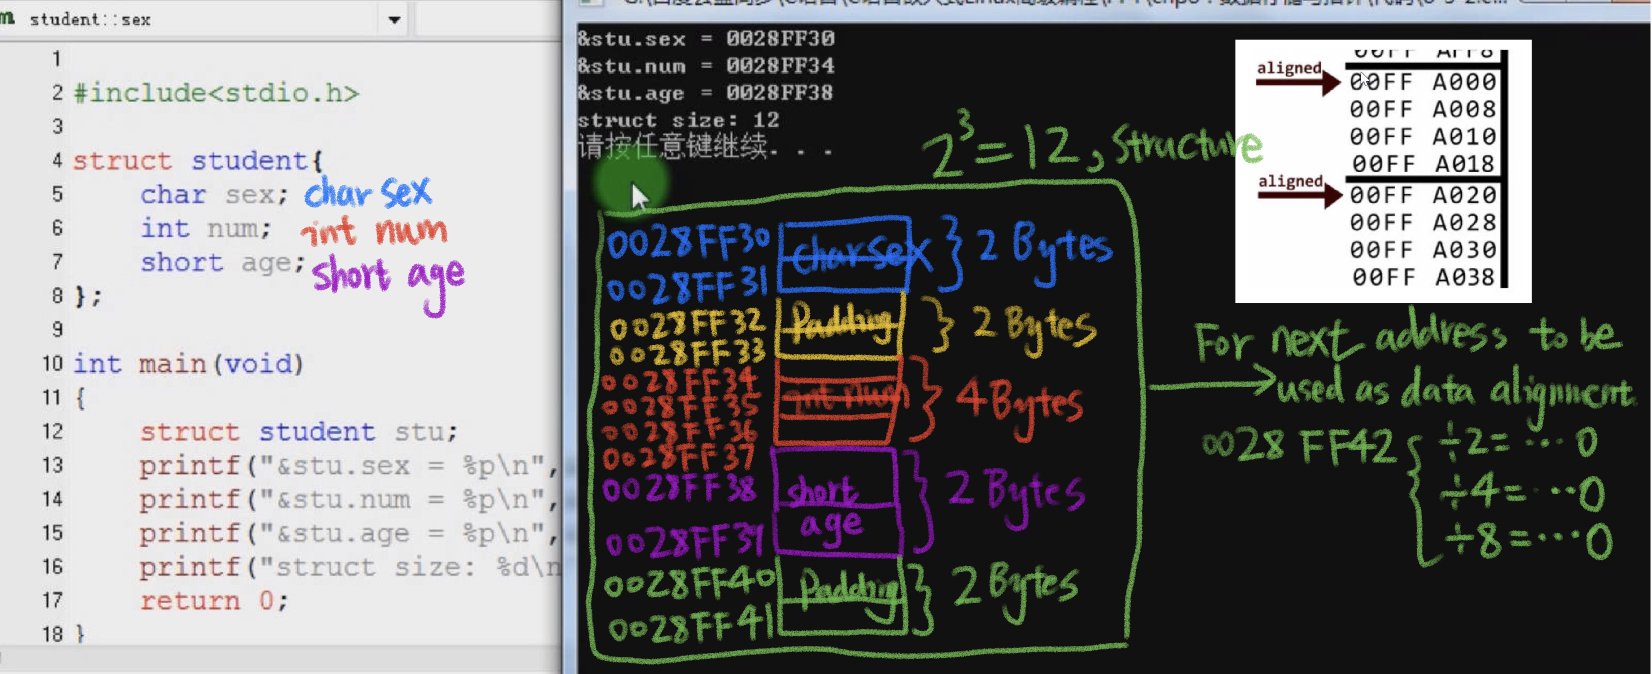 student::sex
1
2 #include<stdio.h>
3
4 struct student{
5 char sex; char sex
6 int num; int num
7 short age; short age
8 };
9
10 int main(void)
11 {
12 struct student stu;
13 printf("&stu.sex = %p\n",
14 printf("&stu.num = %p\n",
15 printf("&stu.age = %p\n",
16 printf("struct size: %d\n
17 return 0;
18 }
&stu.sex = 0028FF30
&stu.num = 0028FF34
&stu.age = 0028FF38
struct size: 12
请按任意键继续. . .
2³=12, Structure
0028FF30 char sex } 2 Bytes
0028FF31
0028FF32 Padding } 2 Bytes
0028FF33
0028FF34 int num } 4 Bytes
0028FF35
0028FF36
0028FF37
0028FF38 short age } 2 Bytes
0028FF39
0028FF40 Padding } 2 Bytes
0028FF41
aligned 00FF A000
00FF A008
00FF A010
00FF A018
aligned 00FF A020
00FF A028
00FF A030
00FF A038
For next address to be
used as data alignment.
0028 FF42 { ÷2=…0
÷4=…0
÷8=…0